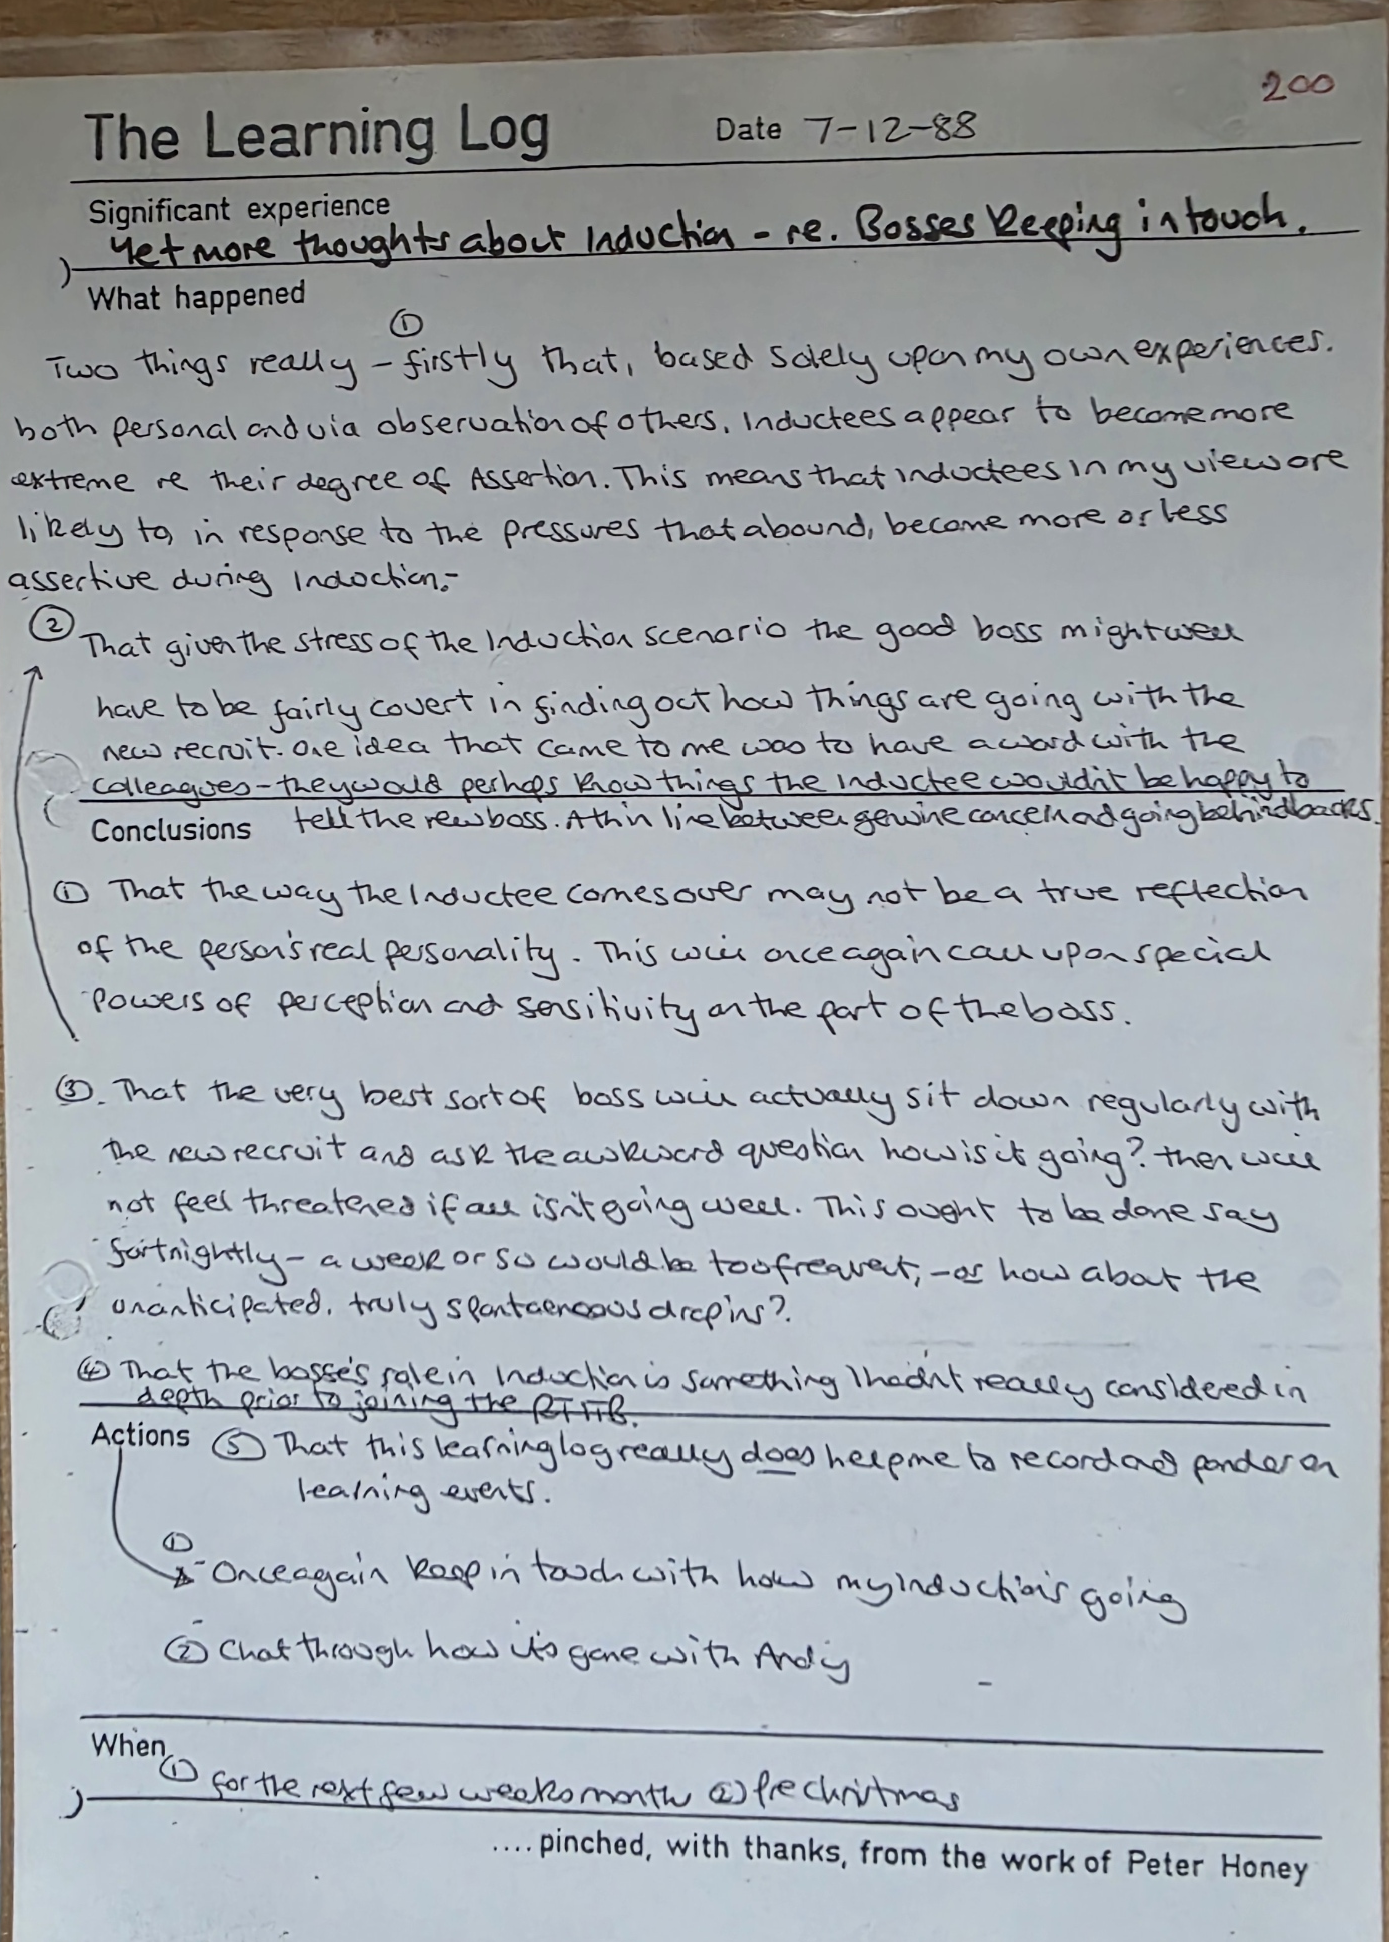 200
The Learning Log Date 7-12-88
Significant experience
Yet more thoughts about Induction - re. Bosses keeping in touch.
What happened
①
Two things really - firstly that, based solely upon my own experiences.
both personal and via observation of others, Inductees appear to become more
extreme re their degree of Assertion. This means that inductees in my view are
likely to, in response to the pressures that abound, become more or less
assertive during Induction.-
② That given the stress of the Induction scenario the good boss might well
have to be fairly covert in finding out how things are going with the
new recruit. One idea that came to me was to have a word with the
colleagues - they would perhaps know things the Inductee wouldn't be happy to
tell the new boss. A thin line between genuine concern and going behind backs.
Conclusions
① That the way the Inductee comes over may not be a true reflection
of the person's real personality. This will once again call upon special
Powers of perception and sensitivity on the part of the boss.
③. That the very best sort of boss will actually sit down regularly with
the new recruit and ask the awkward question how is it going? then will
not feel threatened if all isn't going well. This ought to be done say
fortnightly - a week or so would be too frequent, - or how about the
unanticipated, truly spontaeneous drop ins?
④ That the bosse's role in Induction is something I hadn't really considered in
depth prior to joining the
Actions ⑤ That this learning log really does help me to record and ponder on
learning events.
①
Once again keep in touch with how my induction's going
② Chat through how it's gone with Andy
When
① for the next few weeks month ② Pre christmas
.... pinched, with thanks, from the work of Peter Honey